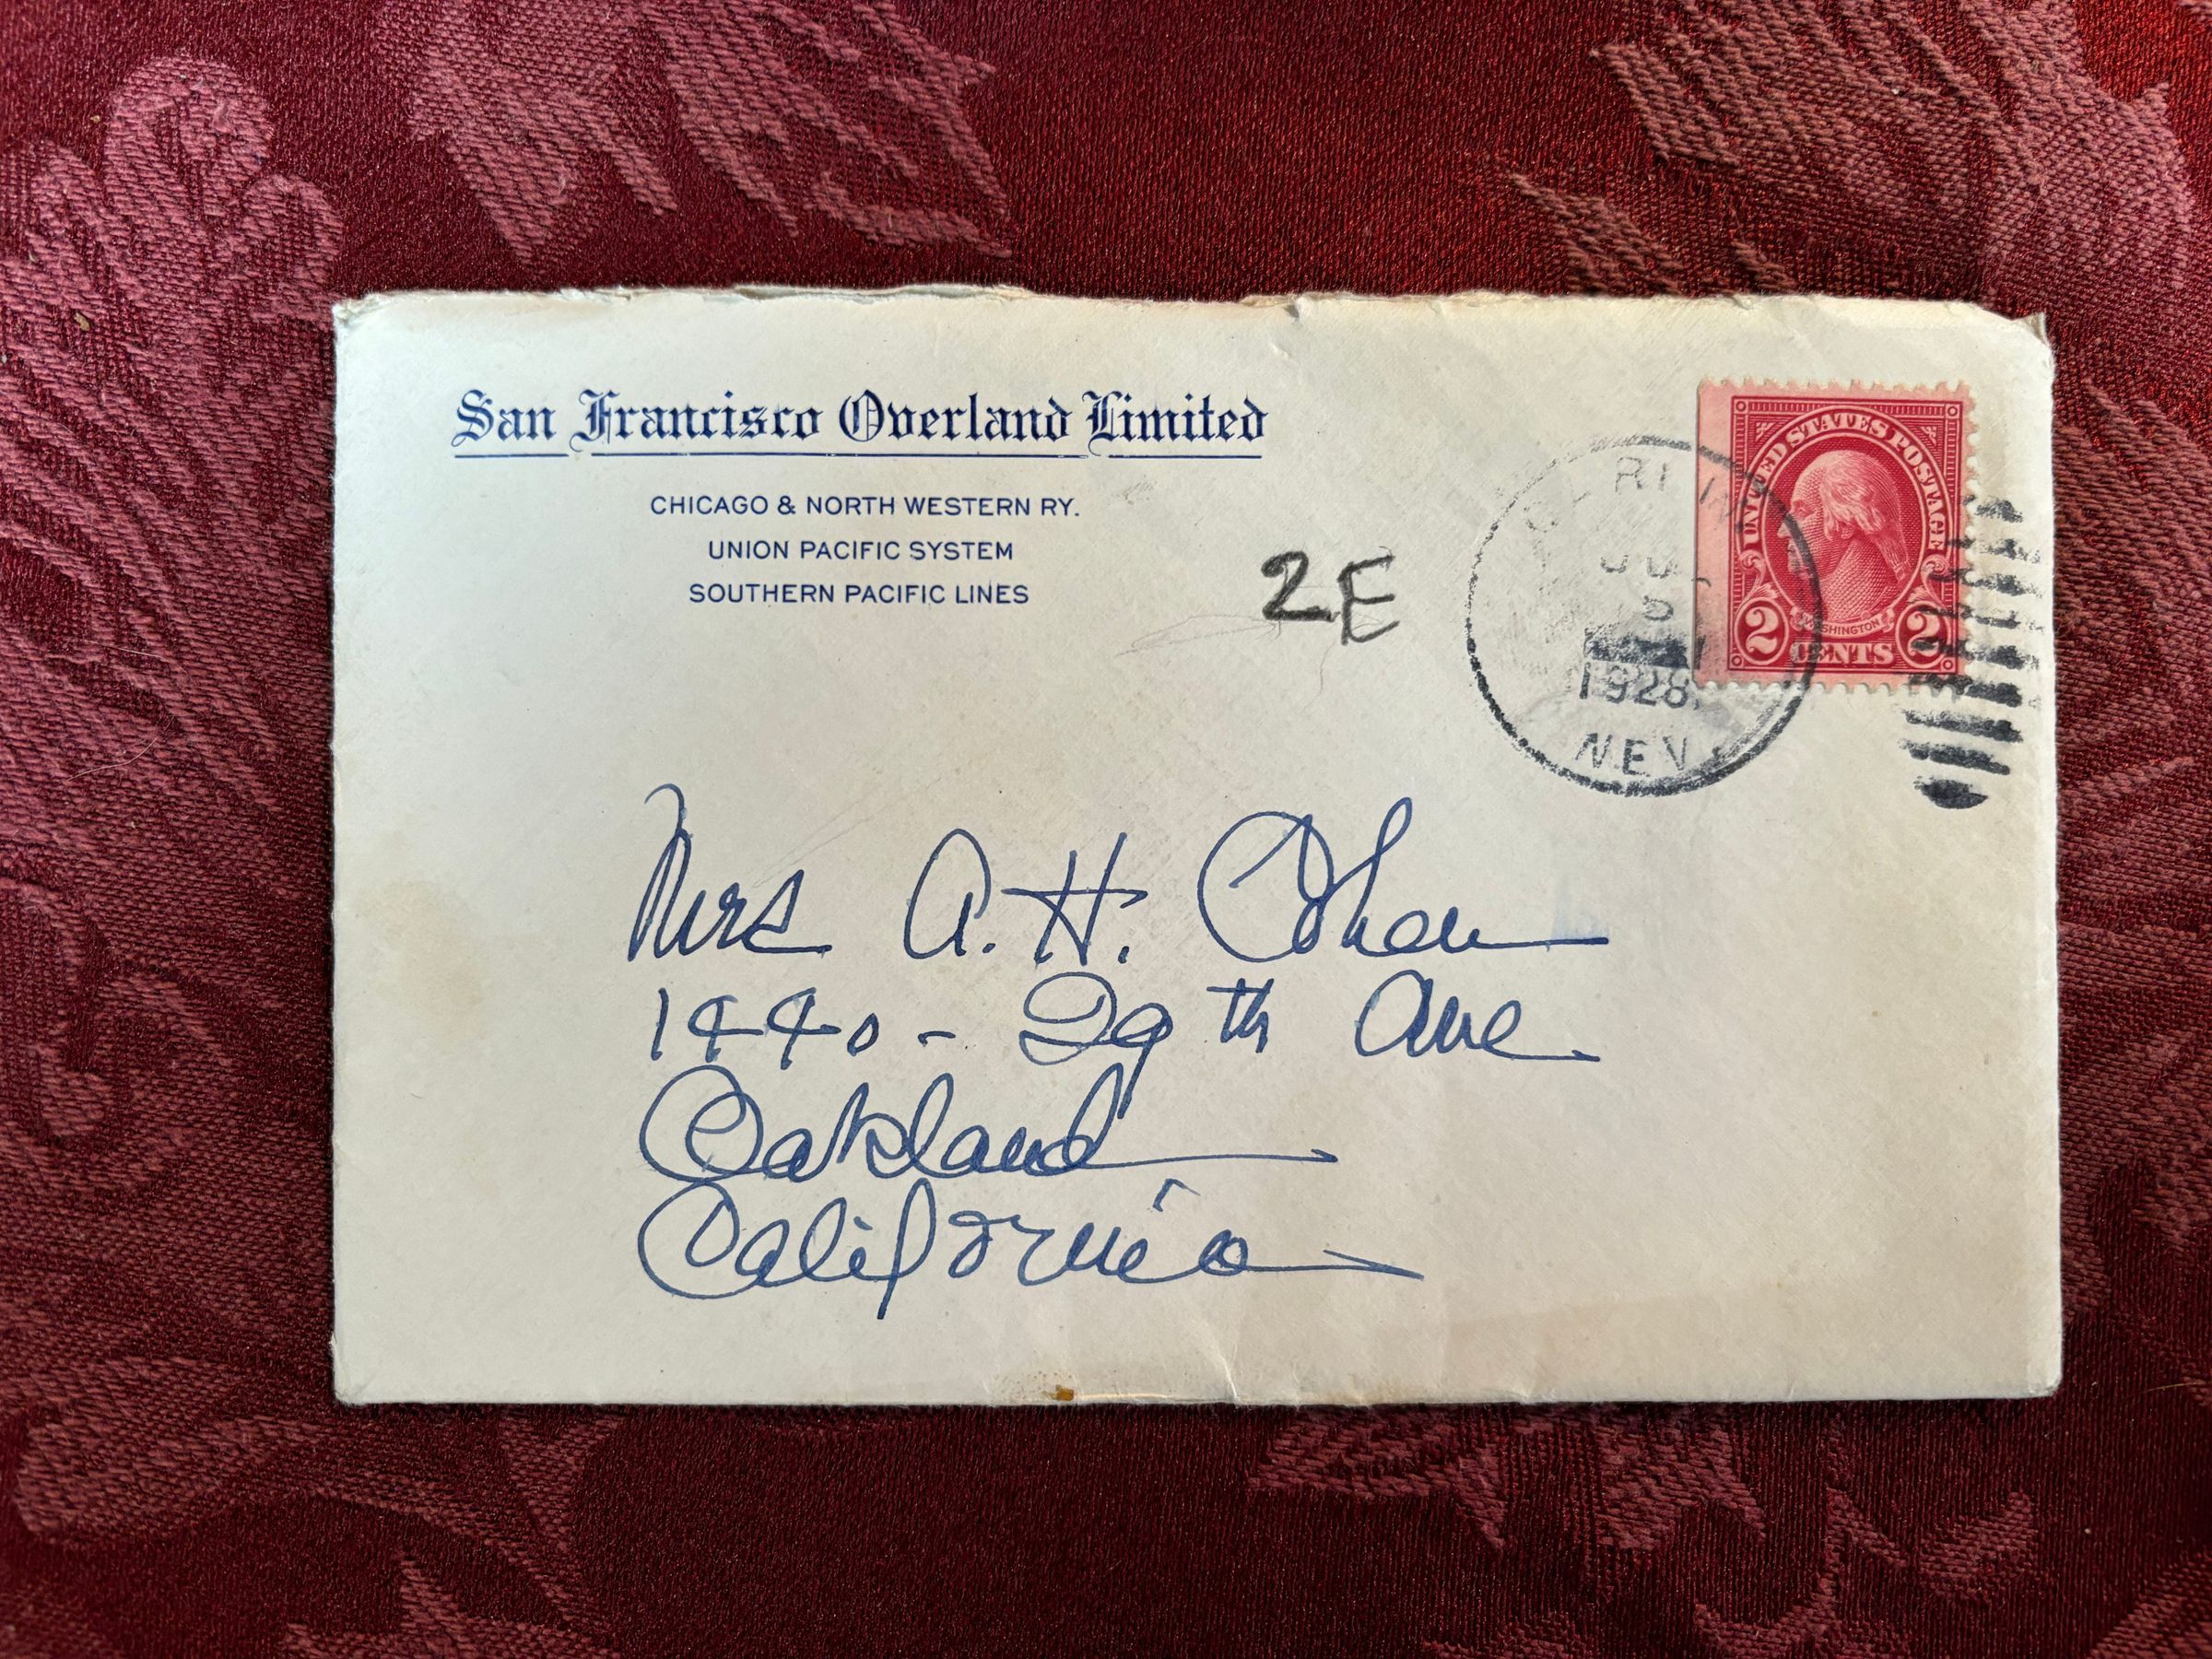 San Francisco Overland Limited
CHICAGO & NORTH WESTERN RY.
UNION PACIFIC SYSTEM
SOUTHERN PACIFIC LINES
2E
1928
NEV.
UNITED STATES POSTAGE
WASHINGTON
2 CENTS 2
Mrs A. H. Cohen
1440 - 29th Ave
Oakland
California